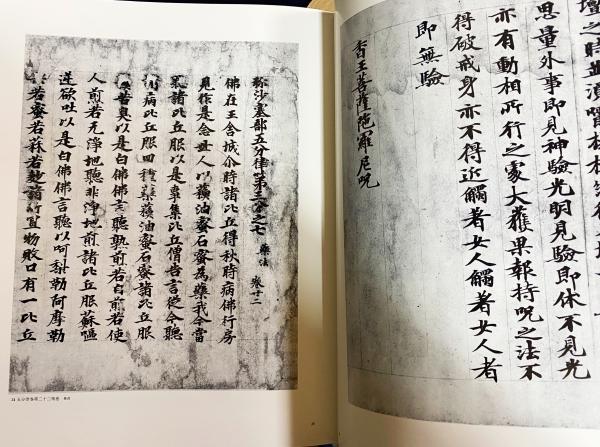 思量外事即見神驗光明見驗即休不見光
亦有動相所行之處大獲果報持呪之法不
得破戒身亦不得近觸著女人觸著女人者
即無驗
香王菩薩陀羅尼呪
弥沙塞部五分律第三分之七 藥法 卷廿二
佛在王舍城尒時諸比丘得秋時病佛行房
見作是念世人以蘇油蜜石蜜為藥我今當
聽諸比丘服以是事集比丘僧告言從今聽
諸病比丘服四種藥蘇油蜜石蜜諸比丘服
蘇臭以是白佛佛言聽熟煎若自煎若使
人煎若无淨地聽非淨地煎諸比丘服蘇嘔
逆欲吐以是白佛佛言聽以呵梨勒阿摩勒
若蜜若蒜若麨諸所宜物敗口有一比丘